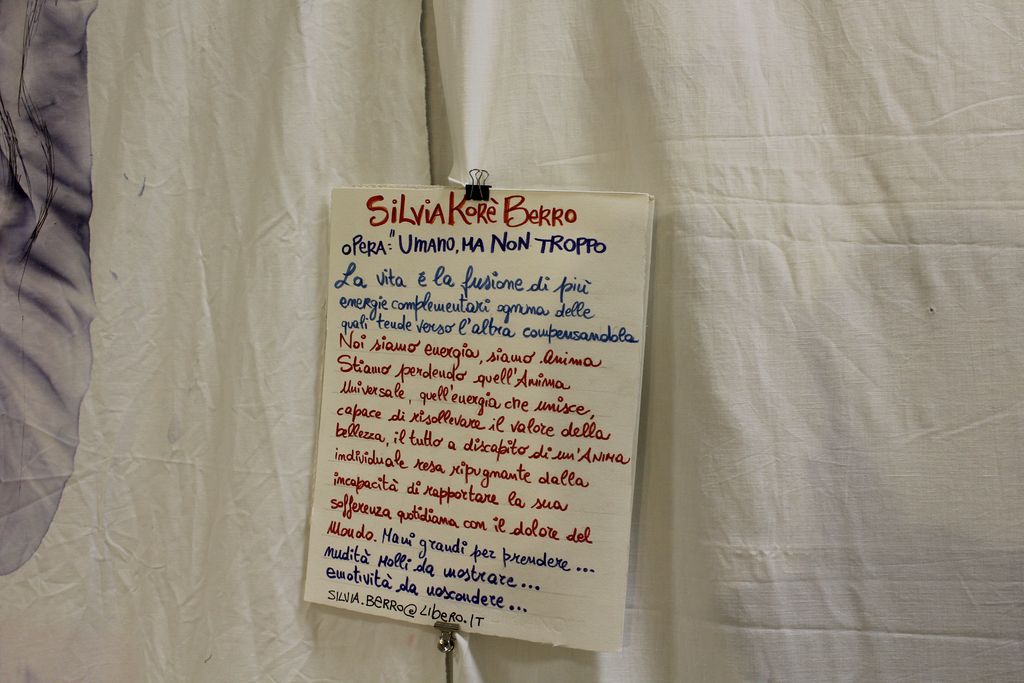 SiLViA KORÈ BERRO
OPERA: "UMANO, MA NON TROPPO
La vita é la fusione di più
energie complementari ognuna delle
quali tende verso l'altra compensandola
Noi siamo energia, siamo Anima
Stiamo perdendo quell'Anima
universale, quell'energia che unisce,
capace di risollevare il valore della
bellezza, il tutto a discapito di un'ANIMA
individuale resa ripugnante dalla
incapacità di rapportare la sua
sofferenza quotidiana con il dolore del
Mondo. Mani grandi per prendere...
nudità molli da mostrare...
emotività da nascondere...
SILVIA.BERRO@LIBERO.IT